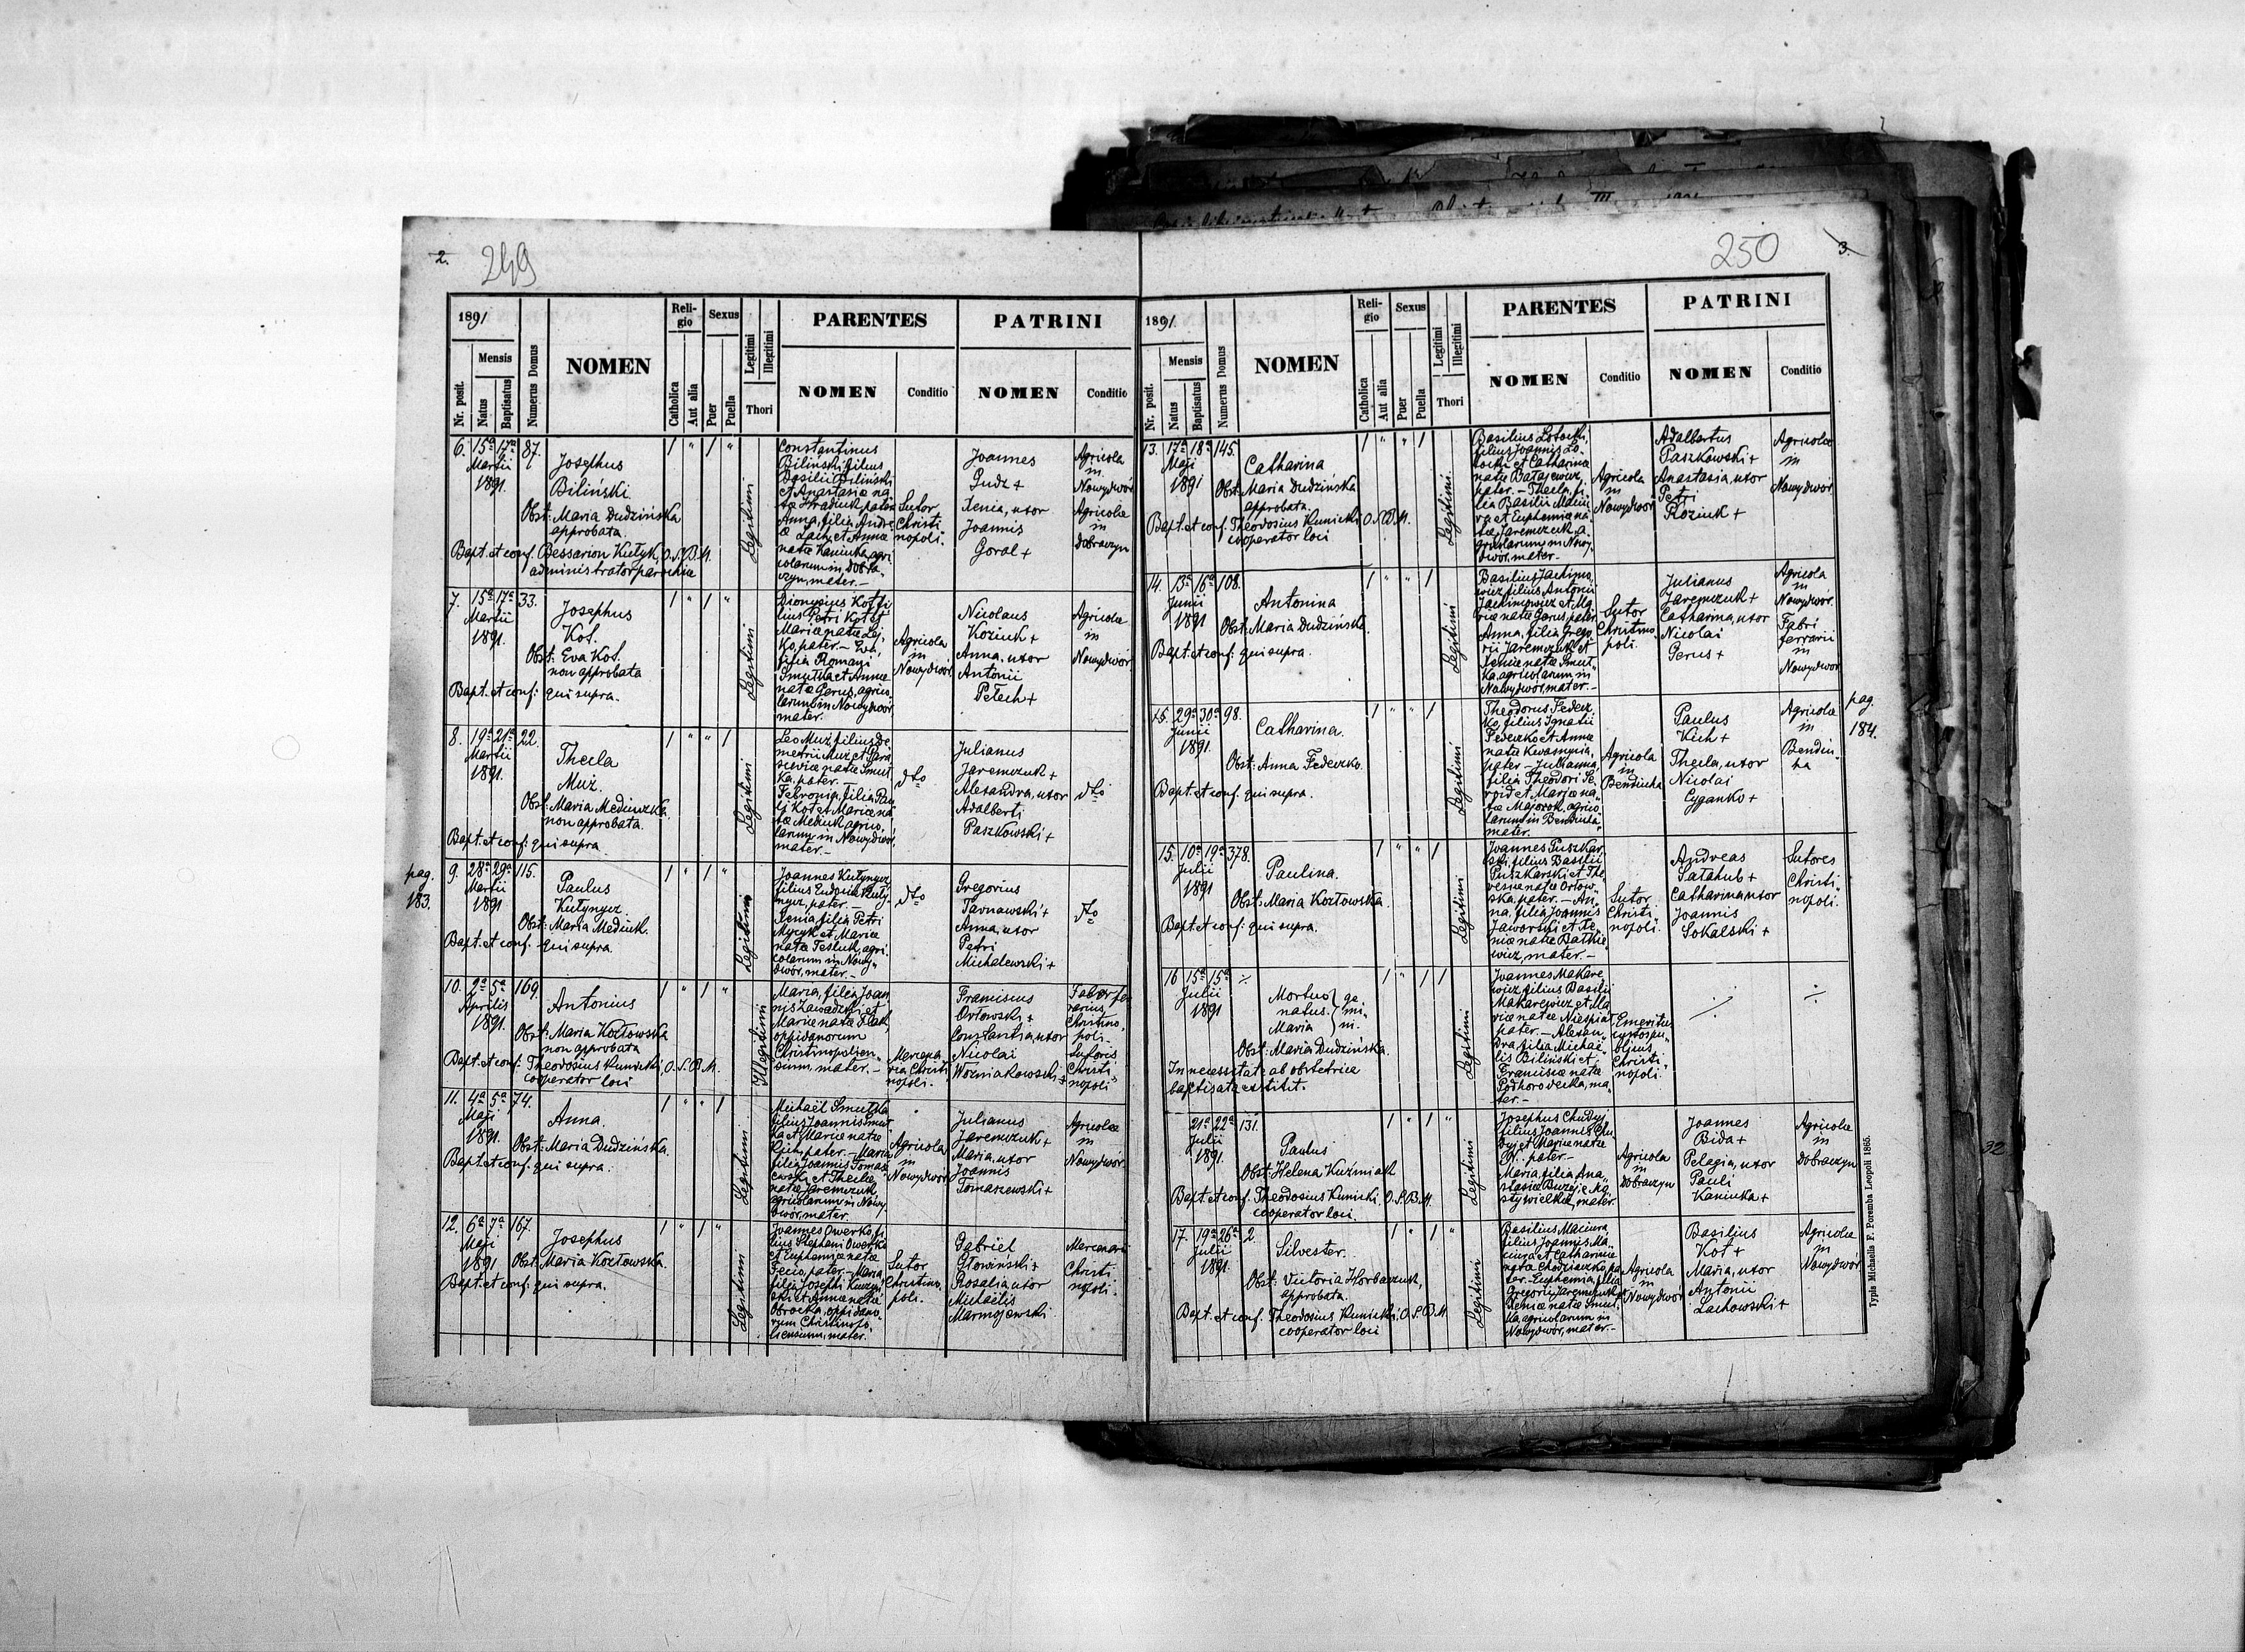 2.
249
1891
Nr. posit.
Mensis
Natus
Baptisatus
Numerus Domus
NOMEN
Religio
Catholica
Aut alia
Sexus
Puer
Puella
Legitimi
Illegitimi
Thori
PARENTES
NOMEN
Conditio
PATRINI
NOMEN
Conditio
6. 15a 17a 87.
Martii
1891.
Josephus
Biliński.
Obst: Maria Dudzińska
approbata.
Bapt. et conf. Bessarion Kułyk, O.S.B.M.
administrator parochiae
Legitimi
Constantinus
Biliński, filius
Basilii Biliński
et Anastasiae na-
tae Hraciuk, pater
Anna, filia Andre-
ae Łach, et Annae
natae Kaniuka, agri-
colarum in Dobra-
czyn, mater.-
Sutor
Christi-
nopoli.
Joannes
Gudz +
Xenia, uxor
Joannis
Goral +
Agricola
in
Nowydwór
Agricolae
in
Dobraczyn
7. 15a 17a 33.
Martii
1891.
Josephus
Kot.
Obst: Eva Kot.
non approbata
Bapt. et conf: qui supra.
Legitimi
Dionysius Kot, fi-
lius Petri Kot et
Mariae natae Ły-
ko, pater.- Eva,
filia Romani
Smutka et Annae
natae Gerus, agrico-
larum in Nowydwór
mater.
Agricola
in
Nowydwór
Nicolaus
Koziuk +
Anna, uxor
Antonii
Pełech +
Agricolae
in
Nowydwór
8. 19a 21a 22.
Martii
1891.
Thecla
Muż.
Obst: Maria Mediuczka
non approbata.
Bapt. et conf: qui supra
Legitimi
Leo Muż, filius De-
metrii Muż et Para-
sceviae natae Smut-
ka, pater.
Febronia, filia Pau-
li Kot et Mariae na-
tae Mediuk, agrico-
larum in Nowydwór,
mater.-
dto
Julianus
Jaremczuk +
Alexandra, uxor
Adalberti
Paszkowski +
dto
pag.
183.
9. 28a 29a 115.
Martii
1891
Paulus
Kutynycz.
Obst: Maria Mediuk.
Bapt. et conf: qui supra.
Legitimi
Joannes Kutynycz
filius Eudociae Kuty-
nycz, pater.-
Xenia filia Petri
Mycyk et Mariae
natae Tesluk, agri-
colarum in Nowy-
dwór, mater.-
dto
Gregorius
Tarnawski +
Anna, uxor
Petri
Michalewski +
dto
10. 2a 5a 169.
Aprilis
1891.
Antonius
Obst: Maria Kozłowska
non approbata
Bapt. et conf: Theodosius Kunicki, O.S.B.M.
cooperator loci
Illegitimi
Maria, filia Joan-
nis Zawadzki et
Mariae natae
oppidanorum
Christinopolien-
sium, mater.-
Mercena-
ria Christi-
nopoli.
Franciscus
Orłowski +
Constantia, uxor
Nicolai
Woźniakowski +
Faber fer-
rarius,
Christino-
poli-
Sutoris
Christi-
nopoli
11. 4a 5a 74.
Maji
1891.
Anna.
Obst: Maria Dudzińska.
Bapt. et conf: qui supra.
Legitimi
Michaël Smutka
filius Joannis Smut-
ka et Mariae natae
pater.- Maria
filia Joannis Tomas-
zewski et Theclae
natae Jaremczuk,
agricolarum in Nowy-
dwór, mater.
Agricola
in
Nowydwór
Julianus
Jaremczuk +
Maria, uxor
Joannis
Tomaszewski +
Agricolae
in
Nowydwór.
12. 6a 7a 167.
Maji
1891
Josephus
Obst: Maria Kozłowska.
Bapt. et conf: qui supra.
Legitimi
Joannes Owerko, fi-
lius Stephani Owerko
et Euphemiae natae
Fecio, pater.- Maria
filia Josephi
et Annae natae
Obrocka, oppidano-
rum Christinopo-
liensium, mater.
Sutor
Christino-
poli.
Gabriel
Głowiński +
Rosalia uxor
Michaëlis
Marmojewski
Mercenarii
Christi-
nopoli.
250
3.
1891.
Nr. posit.
Mensis
Natus
Baptisatus
Numerus Domus
NOMEN
Religio
Catholica
Aut alia
Sexus
Puer
Puella
Legitimi
Illegitimi
Thori
PARENTES
NOMEN
Conditio
PATRINI
NOMEN
Conditio
13. 17a 18a 145.
Maji
1891
Catharina
Obst: Maria Dudzińska
approbata.
Bapt. et conf: Theodosius Kunicki O.S.B.M.
cooperator loci
Legitimi
Basilius Łotocki,
filius Joannis Ło-
tocki et Catharinae
natae Bałajewicz,
pater.- Thecla, fi-
lia Basilii Maciu-
ra et Euphemiae na-
tae Jaremczuk, a-
gricolarum in Nowy-
dwór, mater.-
Agricola
in
Nowydwór
Adalbertus
Paszkowski +
Anastasia, uxor
Petri
Koziuk +
Agricolae
in
Nowydwór
14. 13a 16a 108.
Junii
1891
Antonina
Obst: Maria Dudzińska.
Bapt. et conf: qui supra.
Legitimi
Basilius Jachimo-
wicz filius Antonii
Jachimowicz et Ma-
riae natae Gerus, pater
Anna, filia Grego-
rii Jaremczuk et
Xeniae natae Smut-
ka, agricolarum in
Nowydwór, mater.-
Sutor
Christino-
poli.
Julianus
Jaremczuk +
Catharina, uxor
Nicolai
Gerus +
Agricola
in
Nowydwór.
Fabri
ferrarii
in
Nowydwór
pag.
184.
15. 29a 30a 98.
Junii
1891.
Catharina.
Obst: Anna Fedeczko.
Bapt. et conf: qui supra.
Legitimi
Theodorus Fedecz-
ko, filius Ignatii
Fedeczko et Annae
natae Kwasnycia,
pater.- Julianna,
filia Theodori Se-
roid et Mariae na-
tae Majorok, agrico-
larum in Bendiucha
mater.
Agricola
in
Bendiucha
Paulus
Kich +
Thecla, uxor
Nicolai
Cyganko +
Agricolae
in
Bendiu-
ha
15. 10a 19a 378.
Julii
1891
Paulina.
Obst: Maria Kozłowska.
Bapt. et conf: qui supra.
Legitimi
Joannes Puszkar-
ski, filius Basilii
Puszkarski et The-
resiae natae Orłow-
ska, pater.- An-
na, filia Joannis
Jaworski et Xe-
niae natae Batkie-
wicz, mater.-
Sutor
Christi-
nopoli.
Andreas
Sałahub +
Catharina, uxor
Joannis
Sokalski +
Sutores
Christi-
nopoli.
16 15a 15a ÷
Julii
1891
Mortuo ge-
natus. mi-
Maria ni.
Obst: Maria Dudzińska.
In necessitate ab obstetrice
baptisata extitit.
Legitimi
Joannes Makare-
wicz, filius Basilii
Makarewicz et Ma-
riae natae Niespiał
pater.- Alexan-
dra, filia Michaë-
lis Biliński et
Franciscae natae
Podhorodecka, ma-
ter.-
Emeritus
Christi-
nopoli.
÷
÷
21a 22a 131.
Julii
1891.
Paulus
Obst: Helena Kuźmiak
Bapt. et conf. Theodosius Kunicki. O.S.B.M.
cooperator loci.
Legitimi
Josephus Chudyj
filius Joannis Chu-
dyj et Mariae natae
N.. pater.-
Maria filia Ana-
stasiae
mater.
Agricola
in
Dobraczyn
Joannes
Bida +
Pelagia, uxor
Pauli
Kaniuka +
Agricolae
in
Dobraczyn
17. 19a 26a 2.
Julii
1891.
Silvester.
Obst: Victoria Horbaczuk,
approbata.
Bapt. et conf. Theodosius Kunicki. O.S.B.M.
cooperator loci
Legitimi
Basilius Maciura
filius Joannis Ma-
ciura et Catharinae
natae Chodniaczka, pa-
ter.- Euphemia, filia
Gregorii Jaremczuk
Xeniae natae Smut-
ka, agricolarum in
Nowydwór, mater.-
Agricola
in
Nowydwór
Basilius
Kot +
Maria, uxor
Antonii
Lachowski +
Agricolae
in
Nowydwór
Typis Michaelis F. Poremba Leopoli 1865.
32